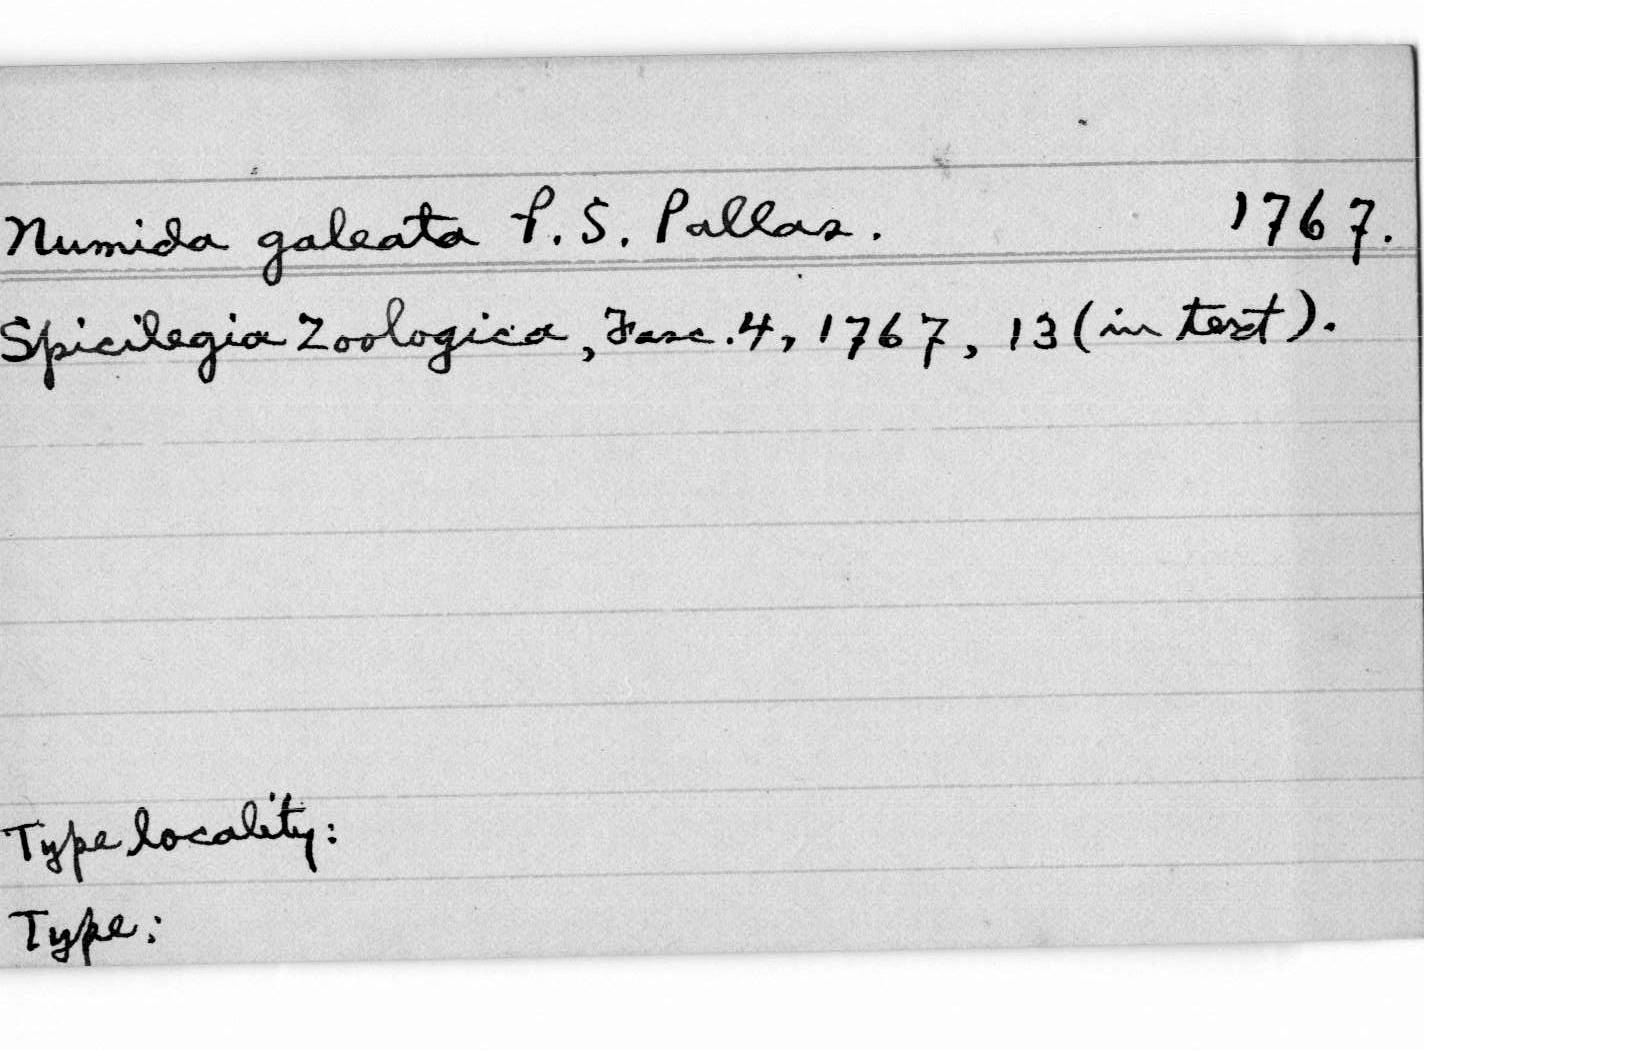 Numida galeata P. S. Pallas. 1767.
Spicilegia Zoologica, Fasc. 4, 1767, 13 (in text).
Type locality:
Type: